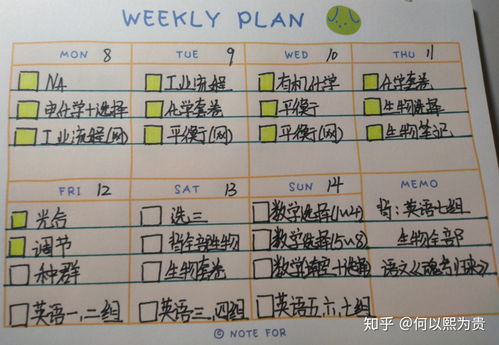 WEEKLY PLAN
MON 8 TUE 9 WED 10 THU 11
NA 工业流程 有机化学 化学套卷
电化学+选择 化学套卷 平衡 生物选择
工业流程(网) 平衡(网) 平衡(网) 生物笔记
FRI 12 SAT 13 SUN 14 MEMO
光合 选三 数学选择(1~4) 背:英语七组
调节 全部生物 数学选择(5~8) 生物全部
种群 生物套卷 数学 语文
英语一,二组 英语三,四组 英语五,六,七组
© NOTE FOR
知乎 @何以熙为贵